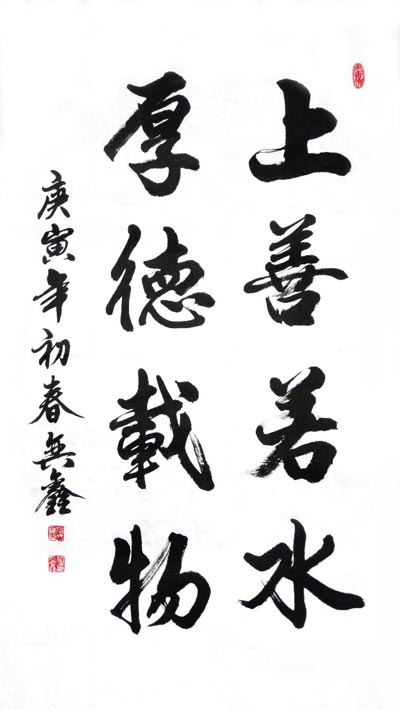 上善若水
厚德載物
庚寅年初春無鑫